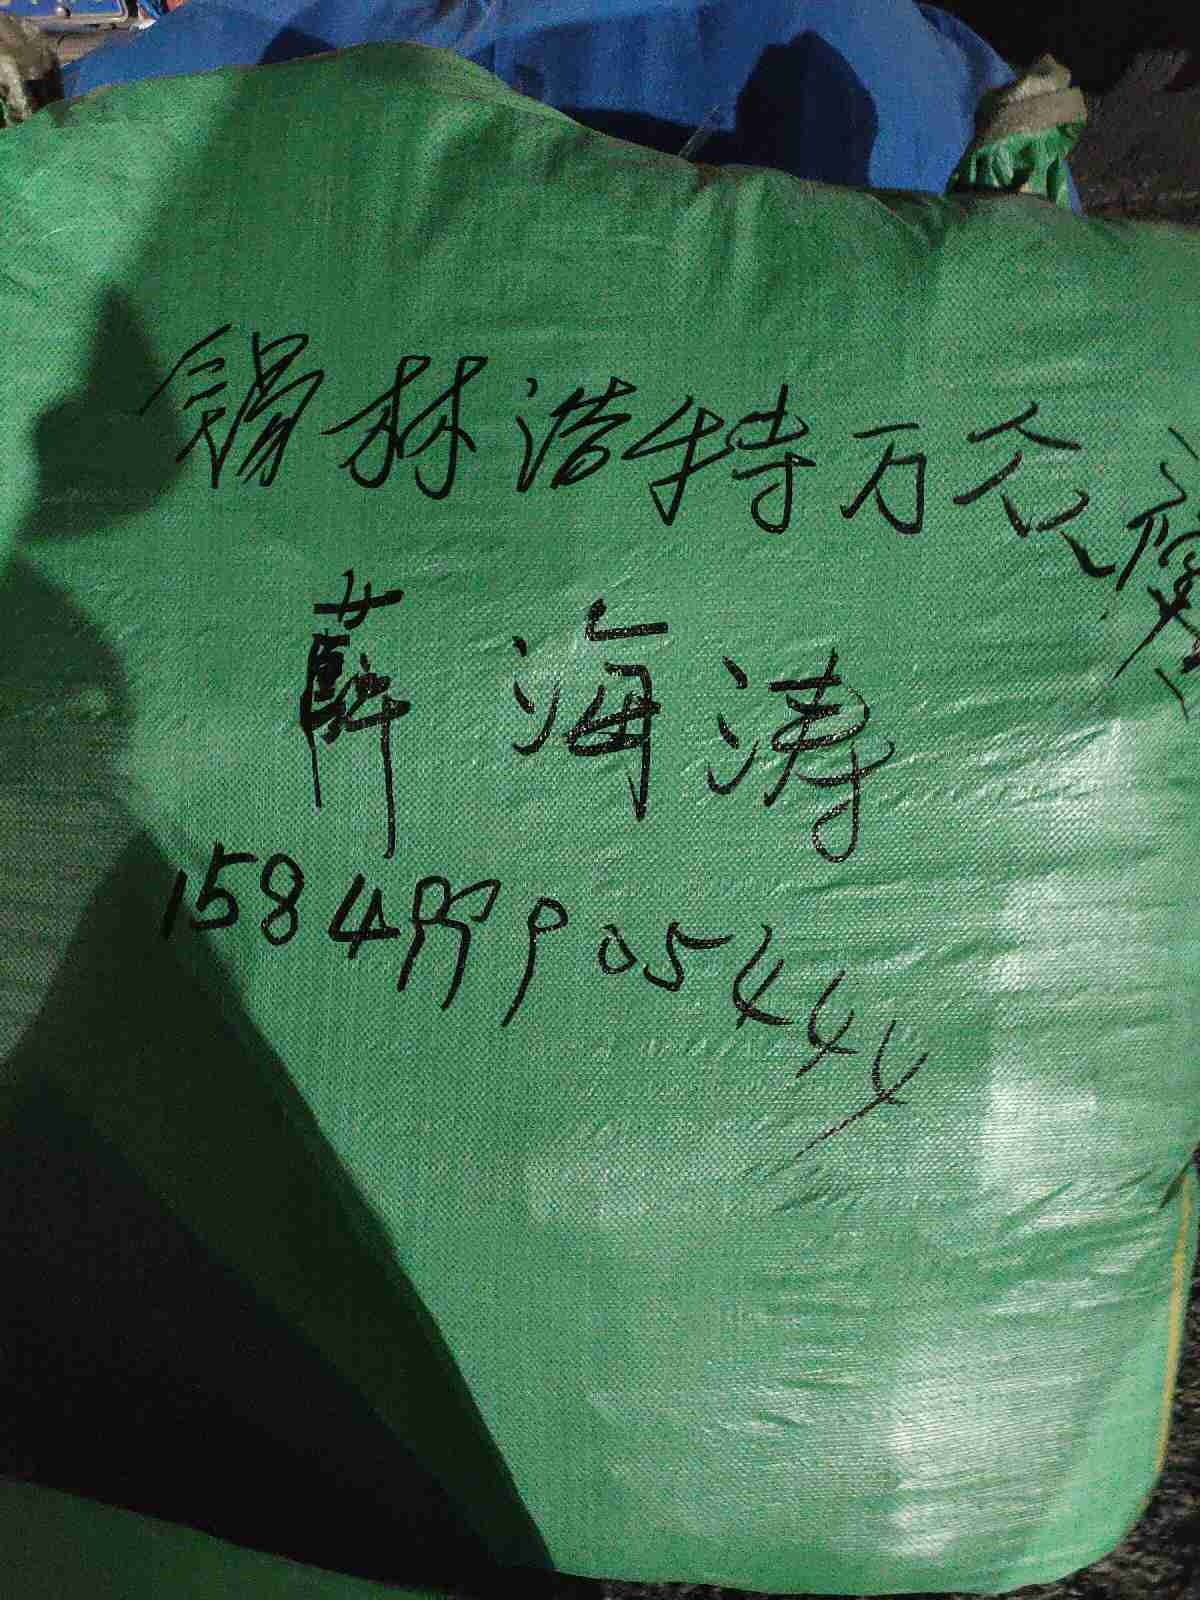 锡林浩特万众
薛海涛
158499905444